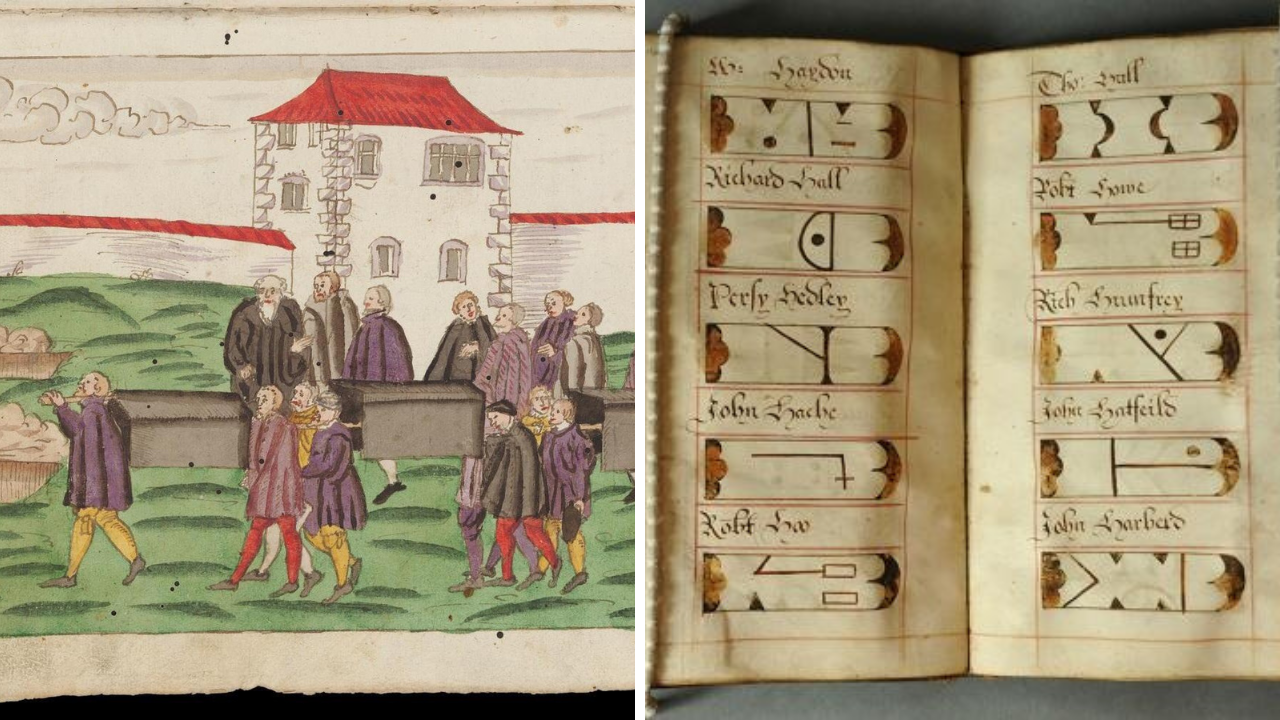 W: Haydon
Richard Hall
Persy Hedley
John Hache
Robt Hoo
Tho: Hall
Robt Howe
Rich Humfrey
John Hatfeild
John Harberd